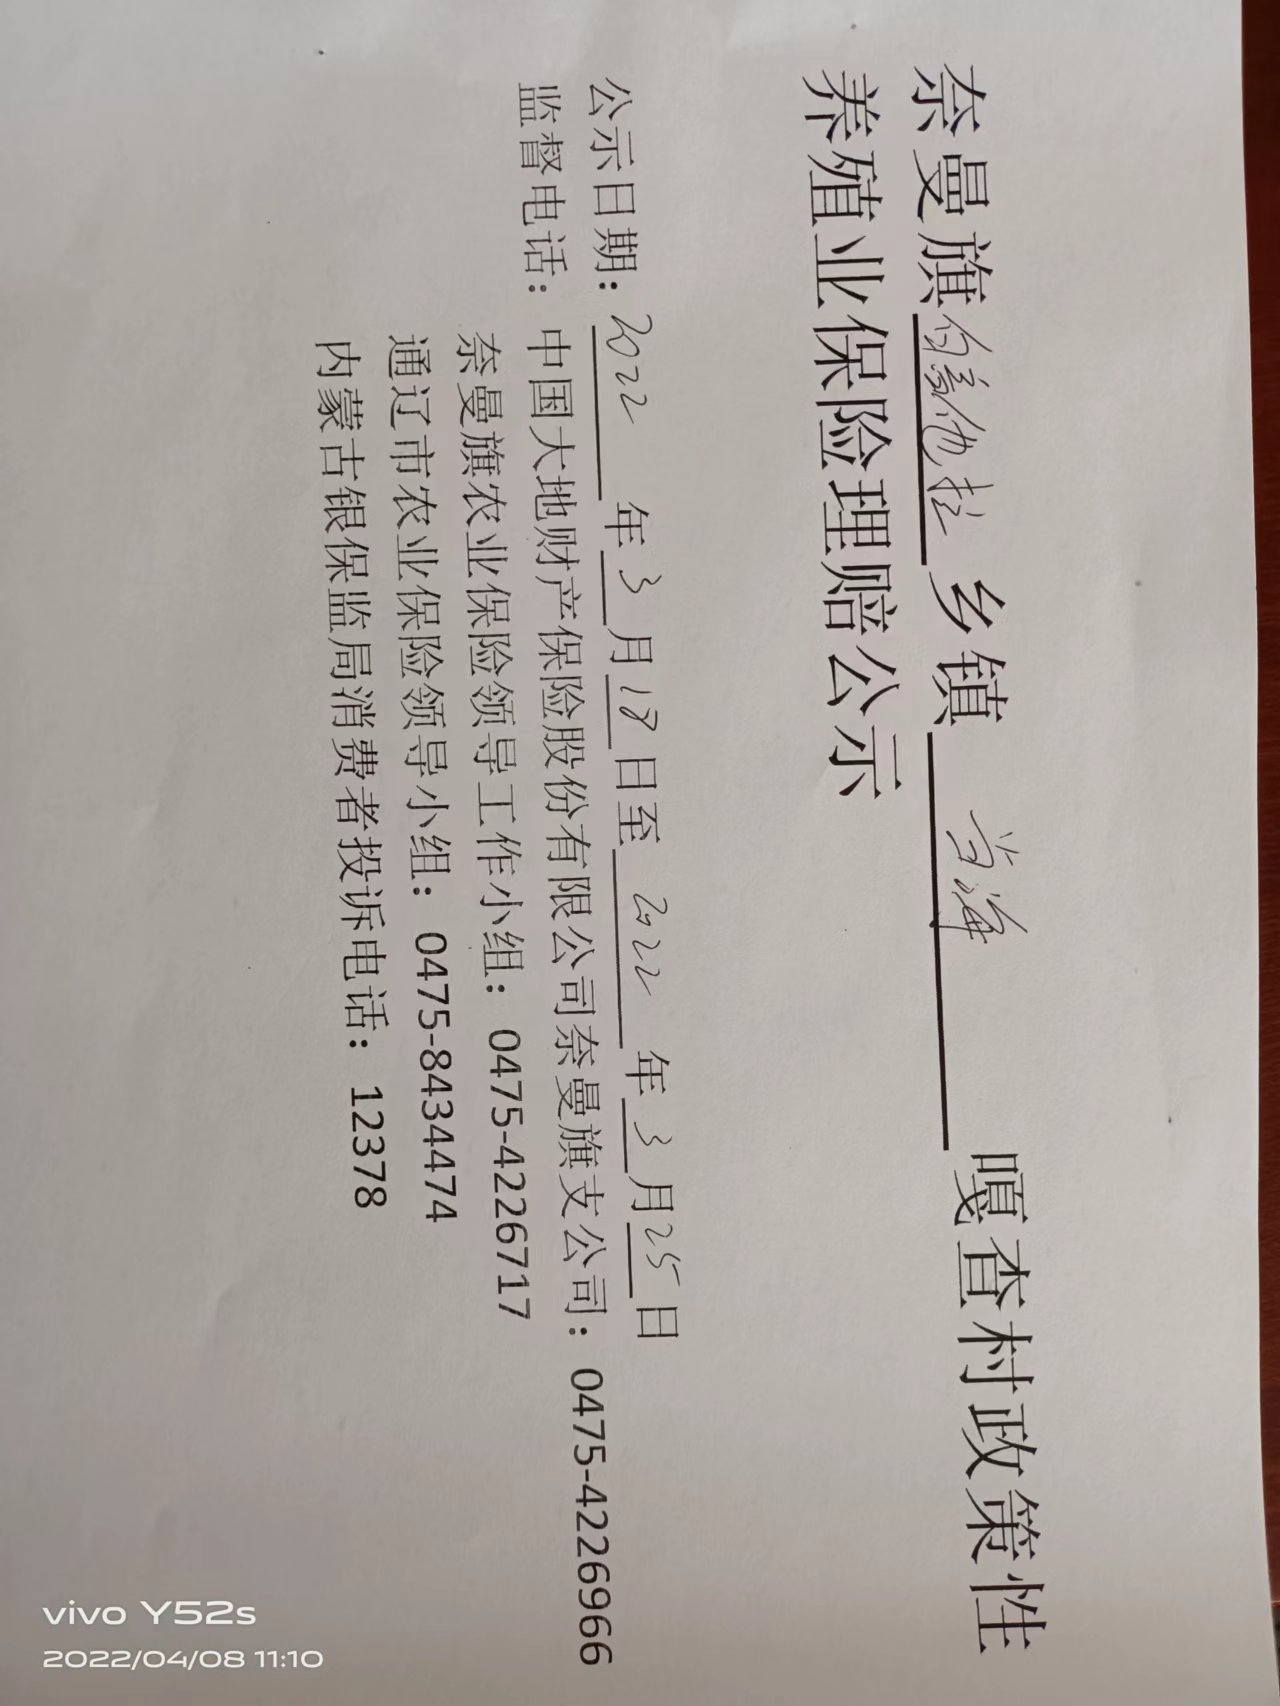 奈曼旗白音他拉乡镇 当海 嘎查村政策性
养殖业保险理赔公示
公示日期：2022 年 3 月 18 日至 2022 年 3 月 25 日
监督电话：中国大地财产保险股份有限公司奈曼旗支公司：0475-4226966
奈曼旗农业保险领导工作小组：0475-4226717
通辽市农业保险领导小组：0475-8434474
内蒙古银保监局消费者投诉电话：12378
vivo Y52s
2022/04/08 11:10